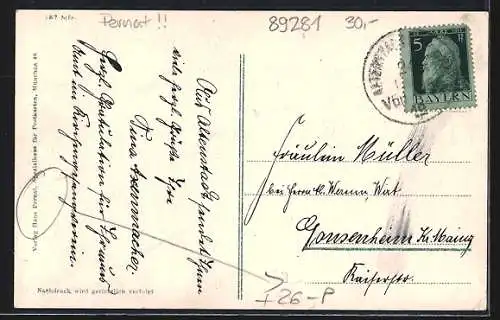 187 Mfr.
Pernat!!
89281
30,-
5
BAYERN
Aus Altenstadt sendet Ihnen
viele herzl. Grüße Ihre
Tina
Herzl. Gratulation für
Amt im Kirchengesangverein.
Fräulein Müller
bei Herrn A. Werum, Wirt
Gonsenheim Kr. Mainz
Kaiserstr.
+26-P
Verlag Hans Pernat, Spezialhaus für Postkarten, München 46
Nachdruck wird gerichtlich verfolgt